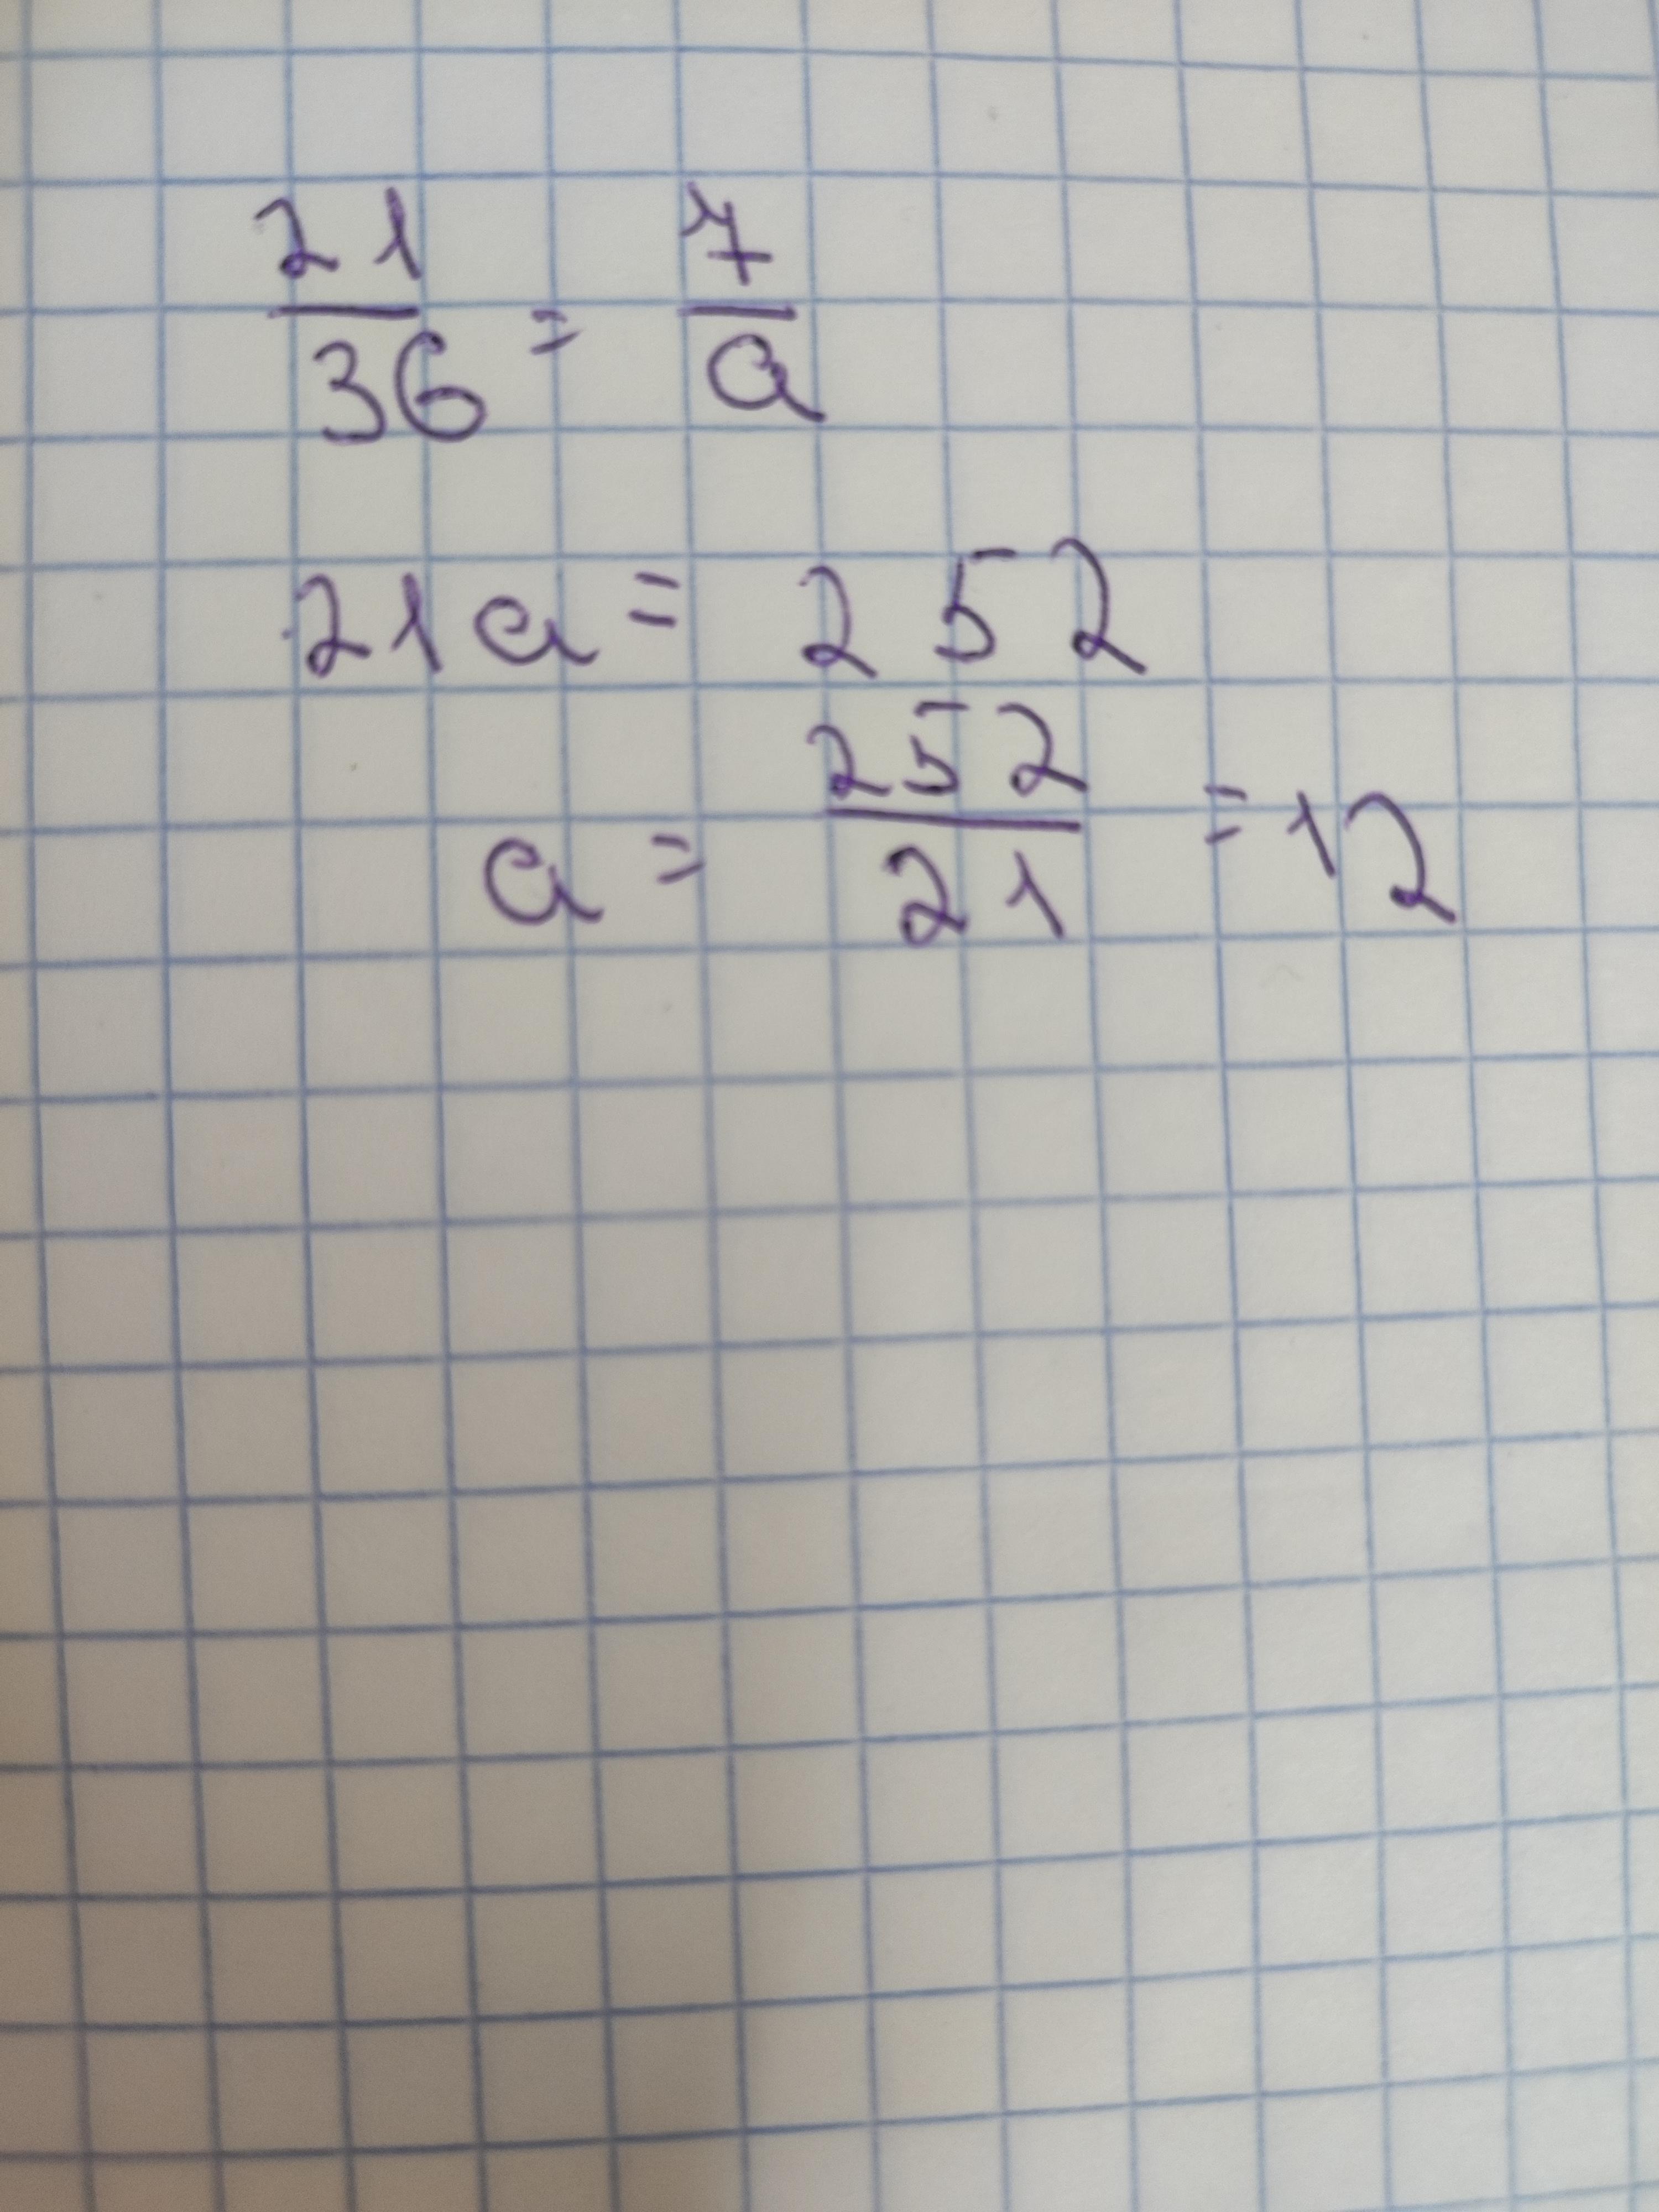 21/36 = 7/a
21a = 252
a = 252/21 = 12